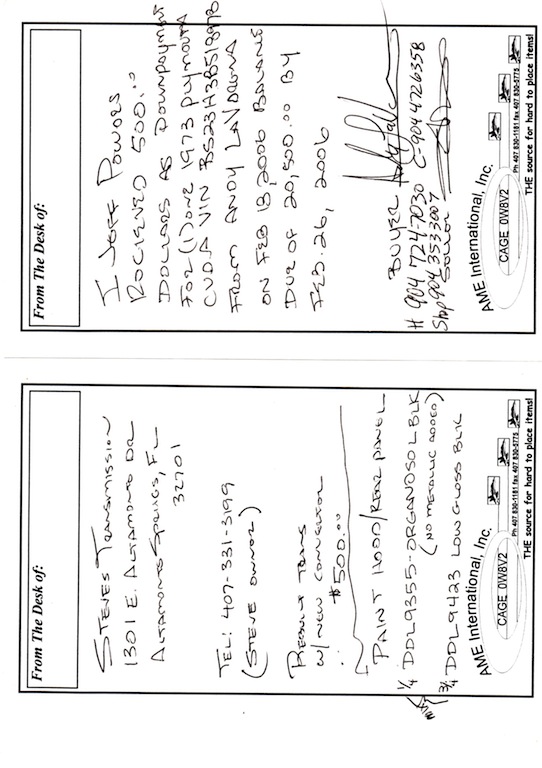 From The Desk of:
STEVES TRANSMISSION
1301 E. ALTAMONTE DR
ALTAMONTE SPRINGS, FL
32701
TEL: 407-331-3199
(STEVE OWNER)
REBUILT TRANS
W/ NEW CONVERTOR
$500.00
PAINT HOOD/REAR PANEL
1/4 DDL9355-ORGANOSOL BLK
(NO METALIC ADDED)
3/4 DDL9423 LOW GLOSS BLK
AME International, Inc.
CAGE 0W8V2
Ph 407 830-1181 fax 407 830-5775
THE source for hard to place items!
From The Desk of:
I JEFF POWERS
RECIEVED 500.00
DOLLARS AS DOWNPAYMENT
FOR (1) ONE 1973 PLYMOUTH
CUDA VIN BS23H3B518978
FROM ANDY
ON FEB 18, 2006 BALANCE
DUE OF 20,500.00 BY
FEB. 26, 2006
BUYER
H 904 724-7030 C 904 4726358
Shp 904 3533007
SELLER
AME International, Inc.
CAGE 0W8V2
Ph 407 830-1181 fax 407 830-5775
THE source for hard to place items!